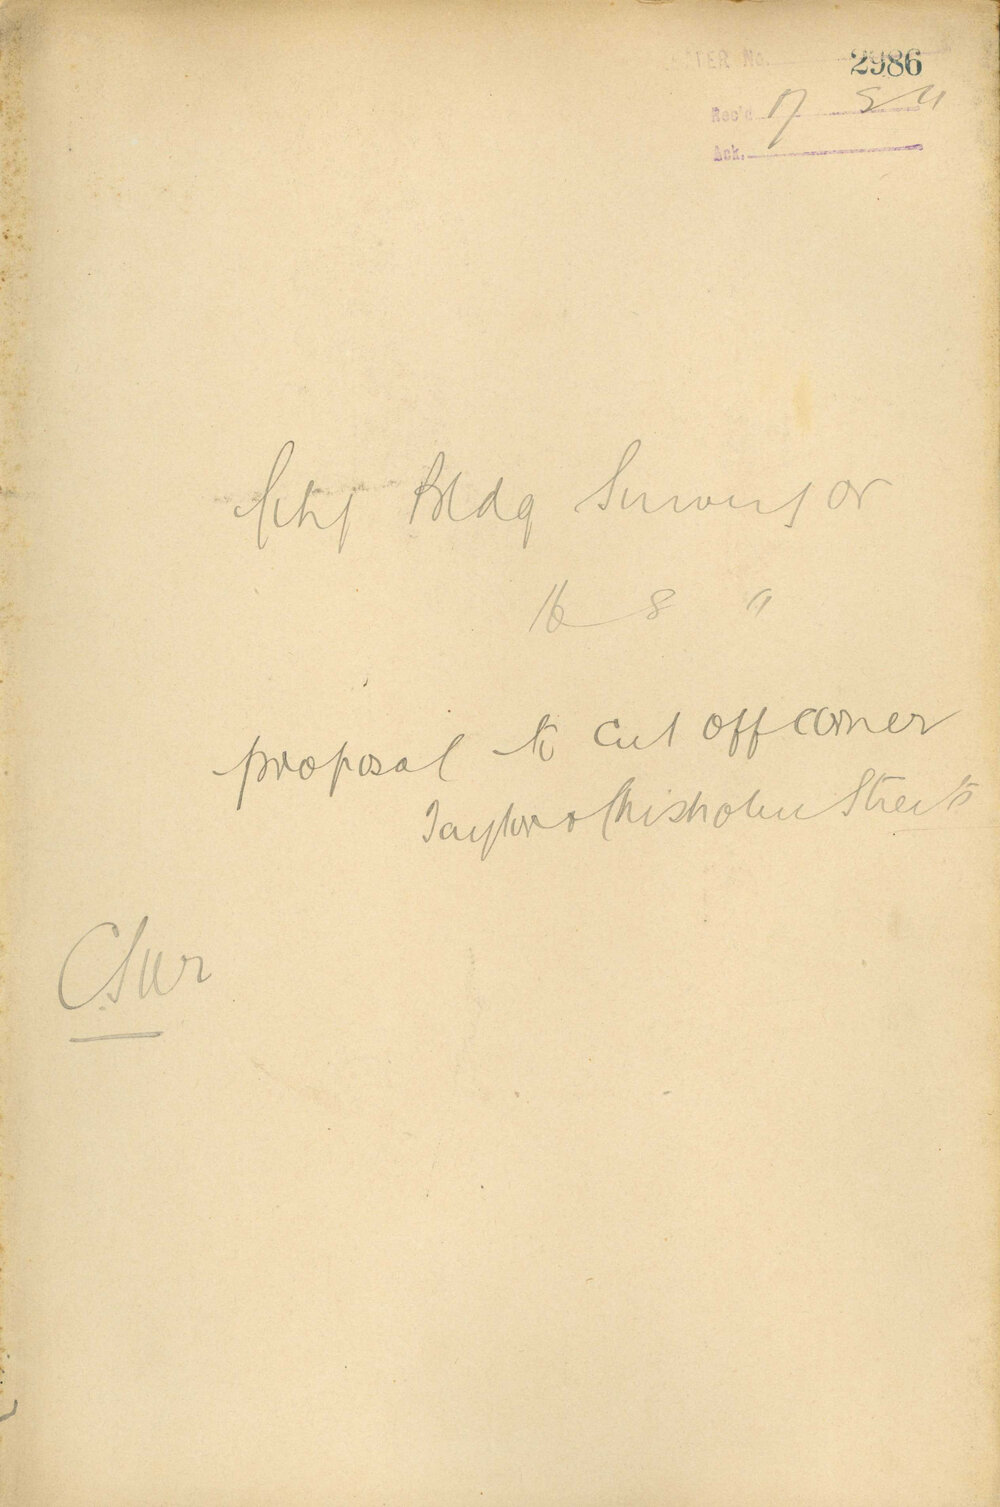 LETTER No. 2986
Rec'd 17 8 11
Ack.
City Bldg Surveyor
16 8 11
proposal to cut off corner
Taylor & Chisholm Streets
C Sur